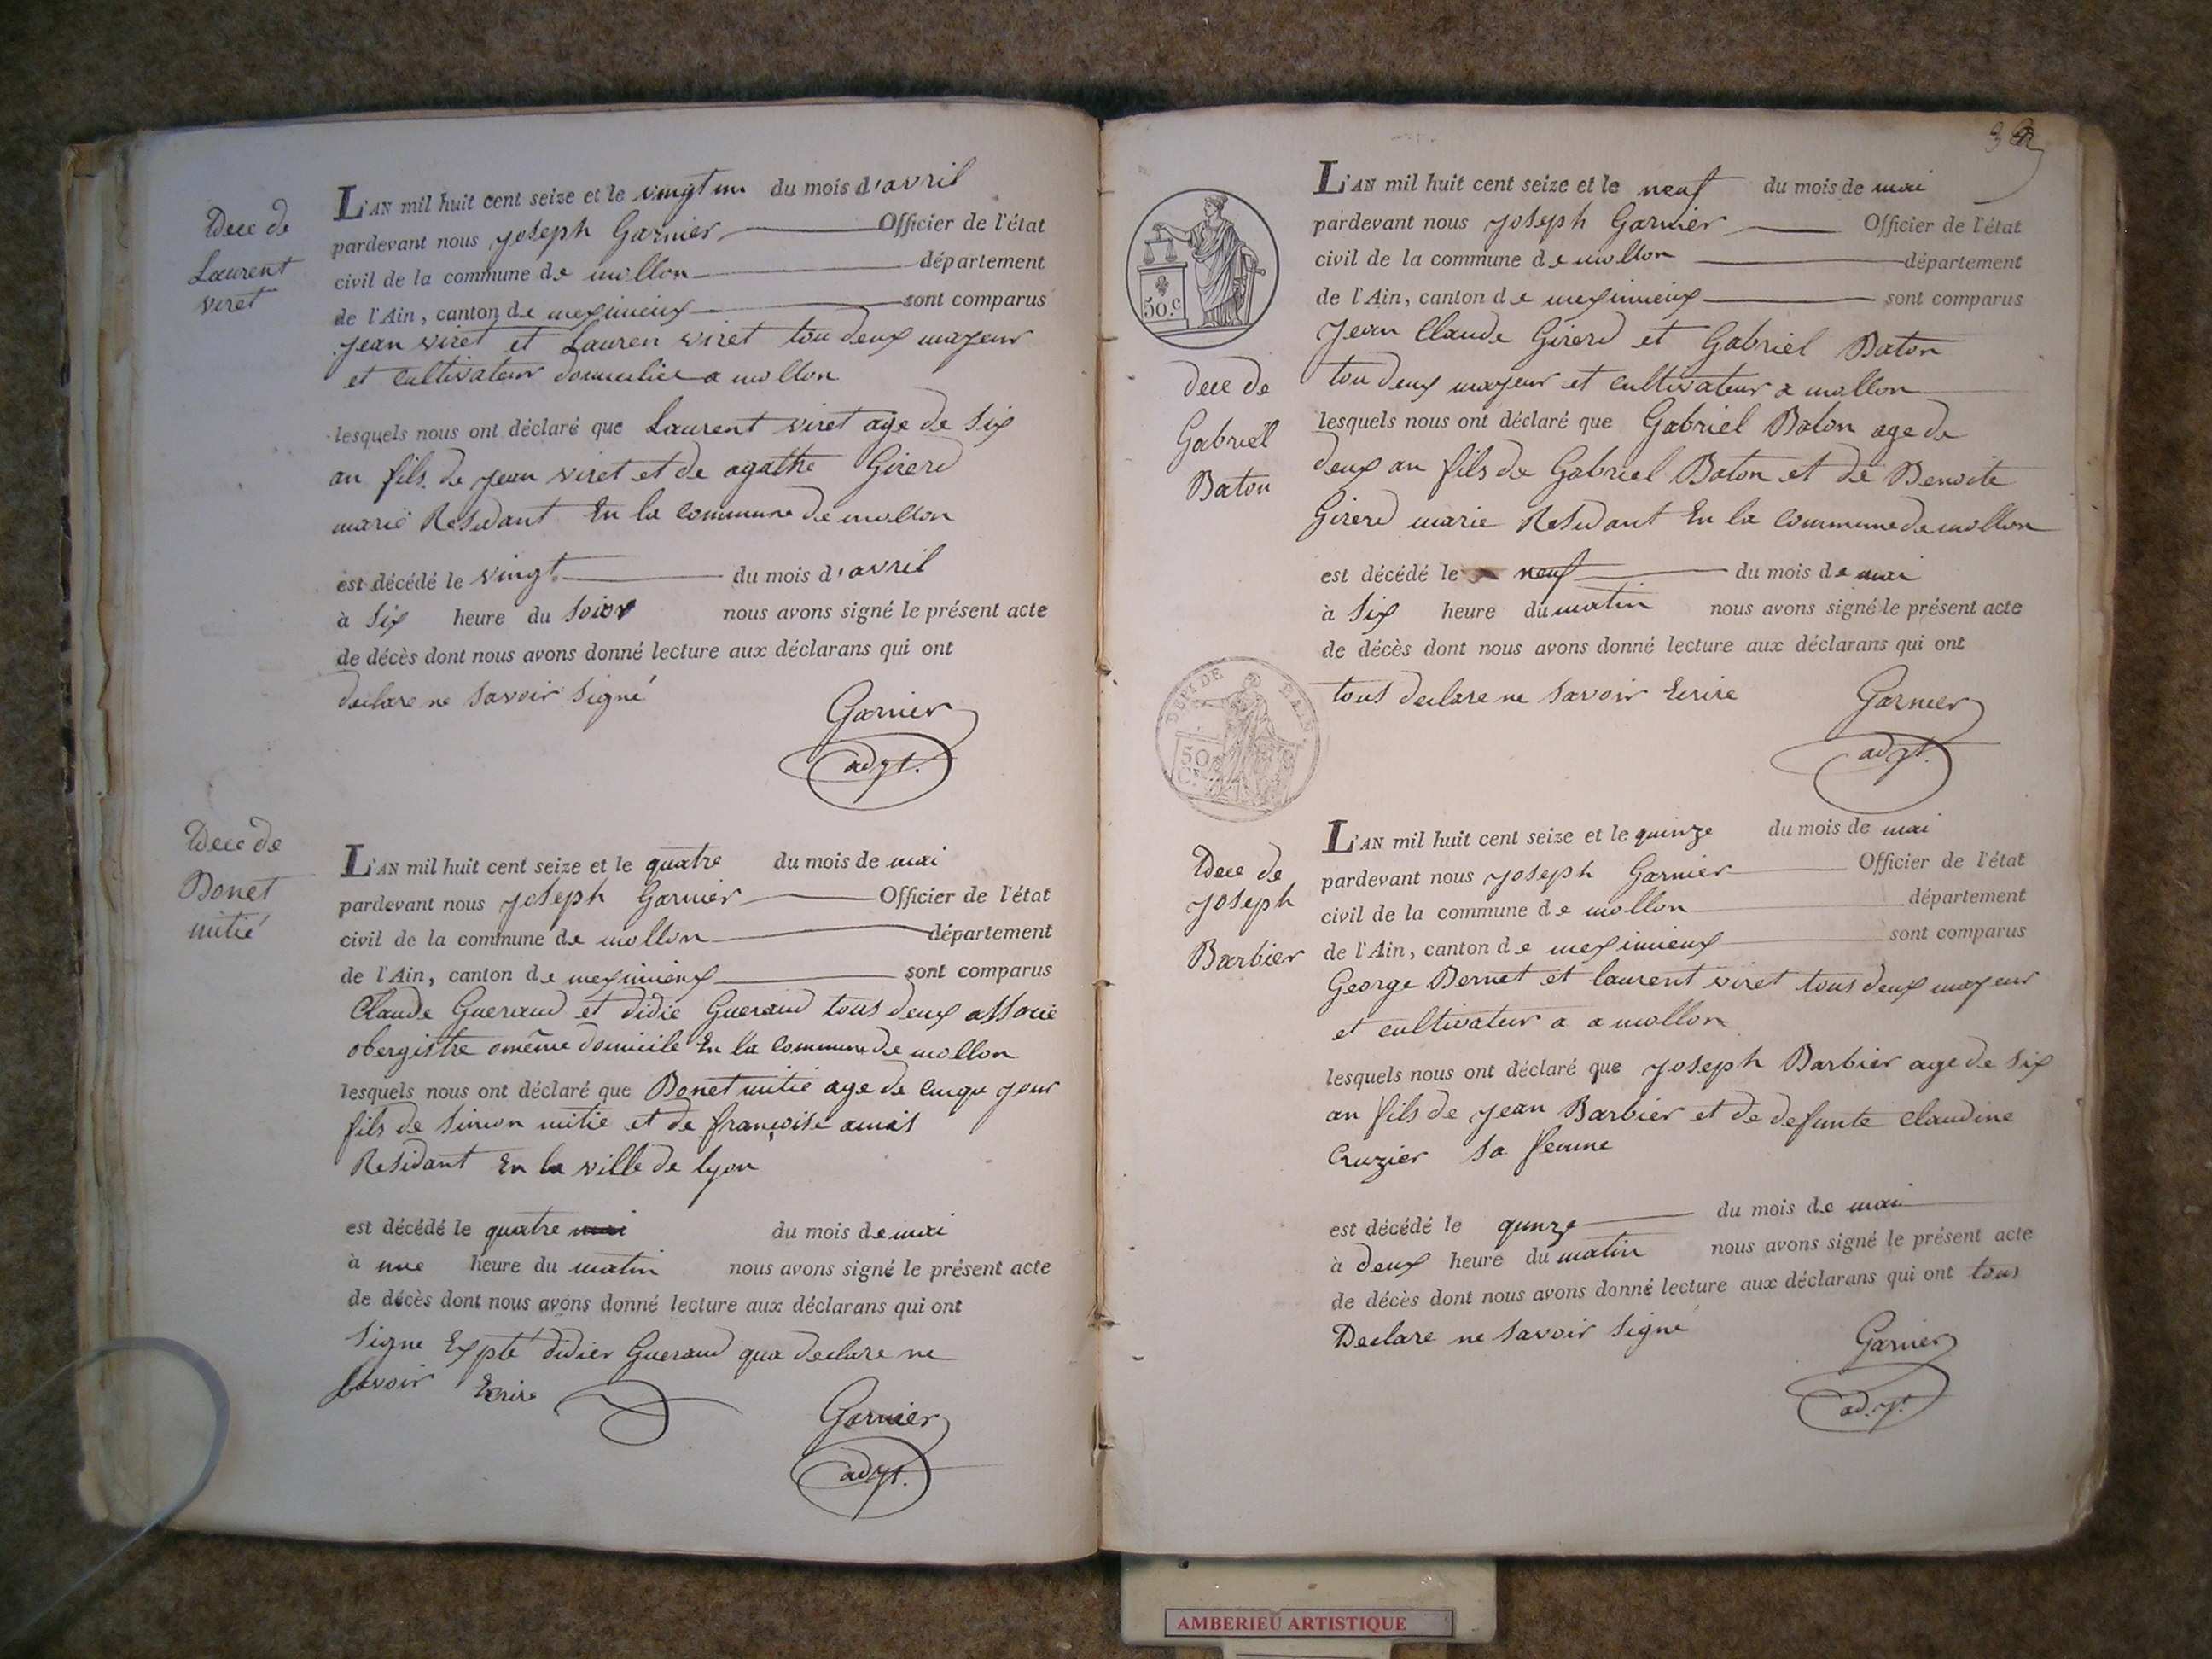 Dece de
Laurent
viret
L'AN mil huit cent seize et le vingt un du mois d'avril
pardevant nous joseph Garnier Officier de l'état
civil de la commune de mollon département
de l'Ain, canton de meximieux sont comparus
jean viret et Lauren viret tou deux majeur
et cultivateur domicilie a mollon
lesquels nous ont déclaré que Laurent viret age de six
an fils de jean viret et de agathe Girerd
marié Residant En la commune de mollon
est décédé le vingt du mois d'avril
à six heure du soior nous avons signé le présent acte
de décès dont nous avons donné lecture aux déclarans qui ont
declare ne savoir signé
Garnier
adjt.
Dece de
Donet
mitié
L'AN mil huit cent seize et le quatre du mois de mai
pardevant nous joseph Garnier Officier de l'état
civil de la commune de mollon département
de l'Ain, canton de meximieux sont comparus
Claude Gueraud et didie Gueraud tous deux associe
obergistre domicile En la commune de mollon
lesquels nous ont déclaré que Donet mitie age de cinqu jour
fils de simon mitie et de françoise amis
Residant En la ville de lyon
est décédé le quatre mai du mois de mai
à une heure du matin nous avons signé le présent acte
de décès dont nous avons donné lecture aux déclarans qui ont
signe Expté didier Gueraud qua declare ne
savoir Ecrire
Garnier
adjt.
50.c
dece de
Gabriël
Baton
L'AN mil huit cent seize et le neuf du mois de mai
pardevant nous joseph Garnier Officier de l'état
civil de la commune de mollon département
de l'Ain, canton de meximieux sont comparus
jean Claude Girerd et Gabriel Baton
tou deux majeur et cultivateur a mollon
lesquels nous ont déclaré que Gabriel Baton age de
deux an fils de Gabriel Baton et de Benoite
Girerd marie Residant En la commune de mollon
est décédé le neuf du mois de mai
à six heure du matin nous avons signé le présent acte
de décès dont nous avons donné lecture aux déclarans qui ont
tous declare ne savoir Ecrire
Garnier
adjt.
50
Dece de
joseph
Barbier
L'AN mil huit cent seize et le quinze du mois de mai
pardevant nous joseph Garnier Officier de l'état
civil de la commune de mollon département
de l'Ain, canton de meximieux sont comparus
George Bernet et laurent viret tous deux majeur
et cultivateur a a mollon
lesquels nous ont déclaré que joseph Barbier age de six
an fils de jean Barbier et de defunte Claudine
Cruzier sa femme
est décédé le qunze du mois de mai
à deux heure du matin nous avons signé le présent acte
de décès dont nous avons donné lecture aux déclarans qui ont tous
Declare ne savoir signe
Garnier
adj.
AMBERIEU ARTISTIQUE